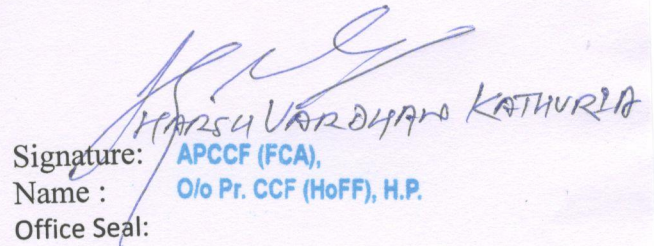 HARSH VARDHAN KATHURIA
Signature: APCCF (FCA),
Name : O/o Pr. CCF (HoFF), H.P.
Office Seal: